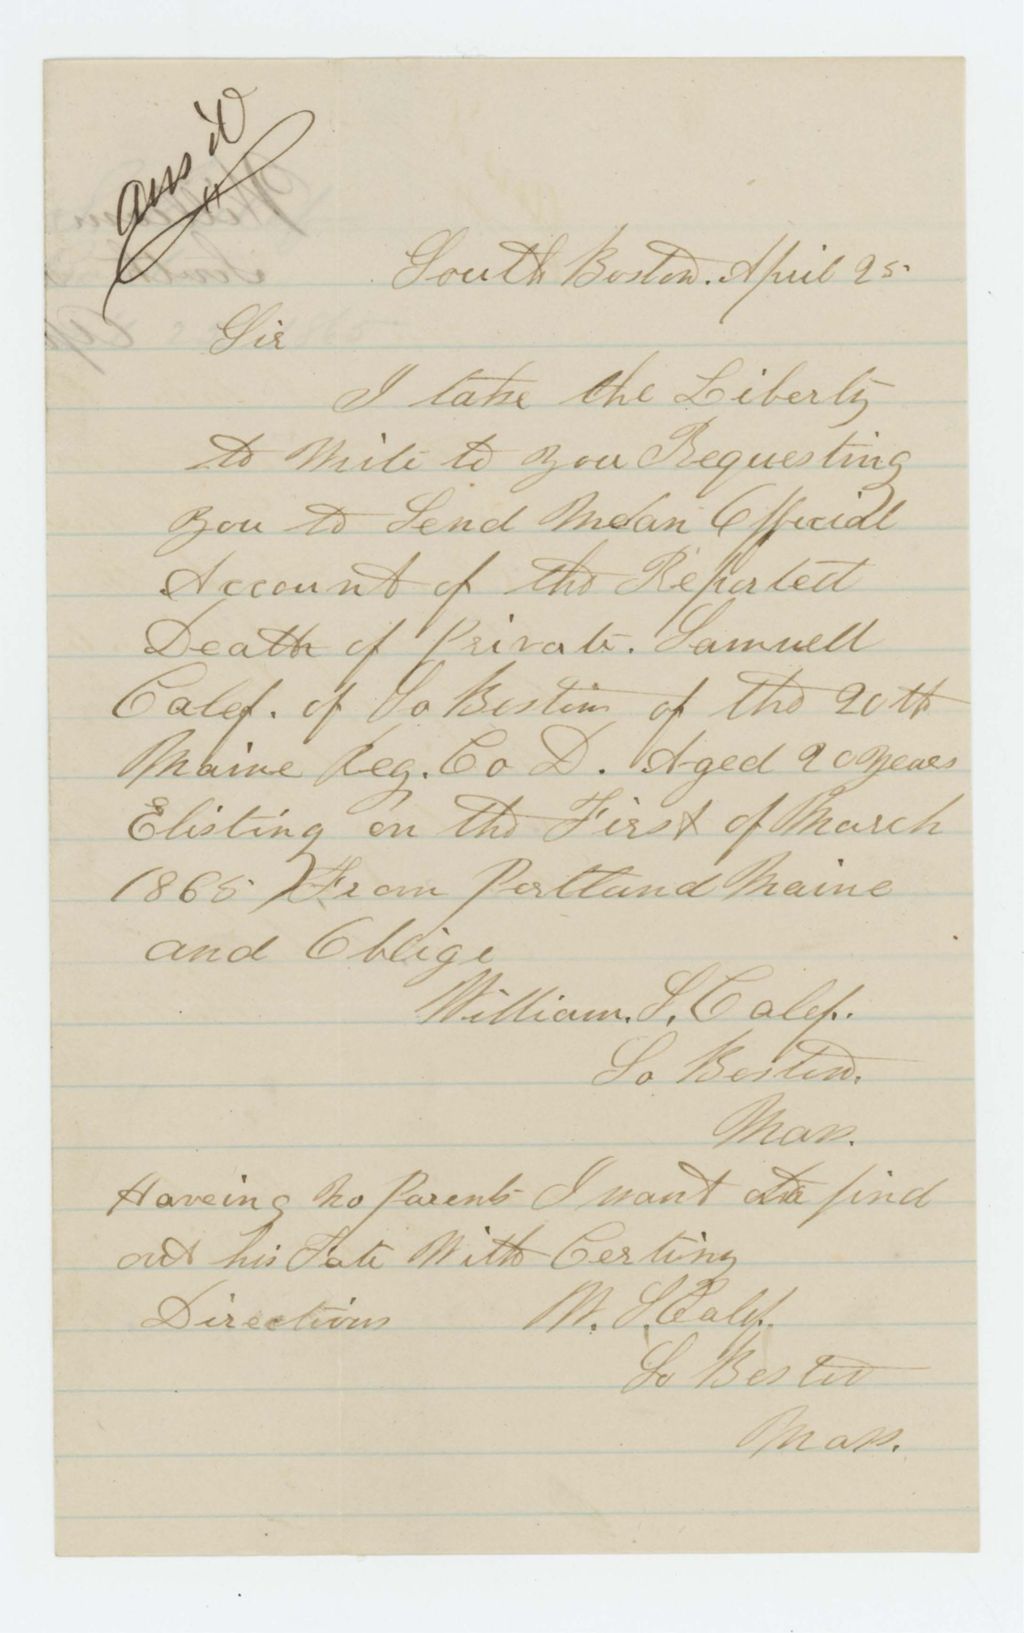 ans'd
South Boston. April 25
Sir
I take the Liberty
to Write to you Requesting
you to Send Me an Official
Account of the Reported
Death of Private. Samuell
Calef. of So Boston of the 20th
Maine Reg. Co D. Aged 20 years
Elisting on the First of March
1865 From Portland Maine
and Oblige
William. S. Calef.
So Boston.
Mass.
Haveing No Parents I want to find
out his Fate With Certiny
Directions W. S. Calef.
So Boston
Mass.